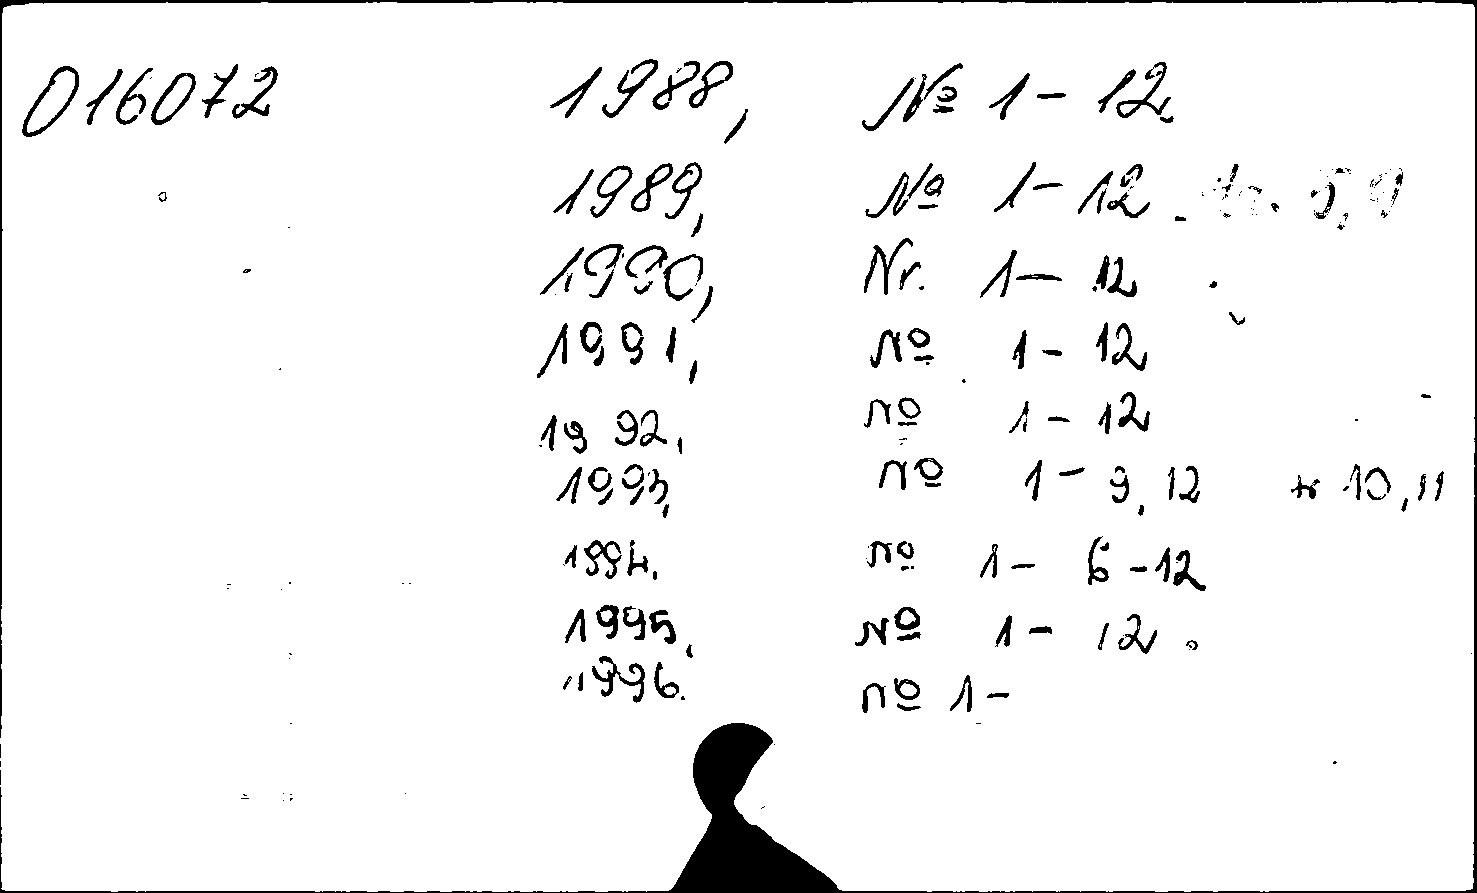 016072 1988, № 1 - 12.
1989, № 1 - 12. 5, 9
1990, Nr. 1 - 12
1991, № 1 - 12
1992, № 1 - 12
1993, № 1 - 9, 12 10, 11
1994. № 1 - 6 - 12
1995, № 1 - 12.
1996. № 1 -